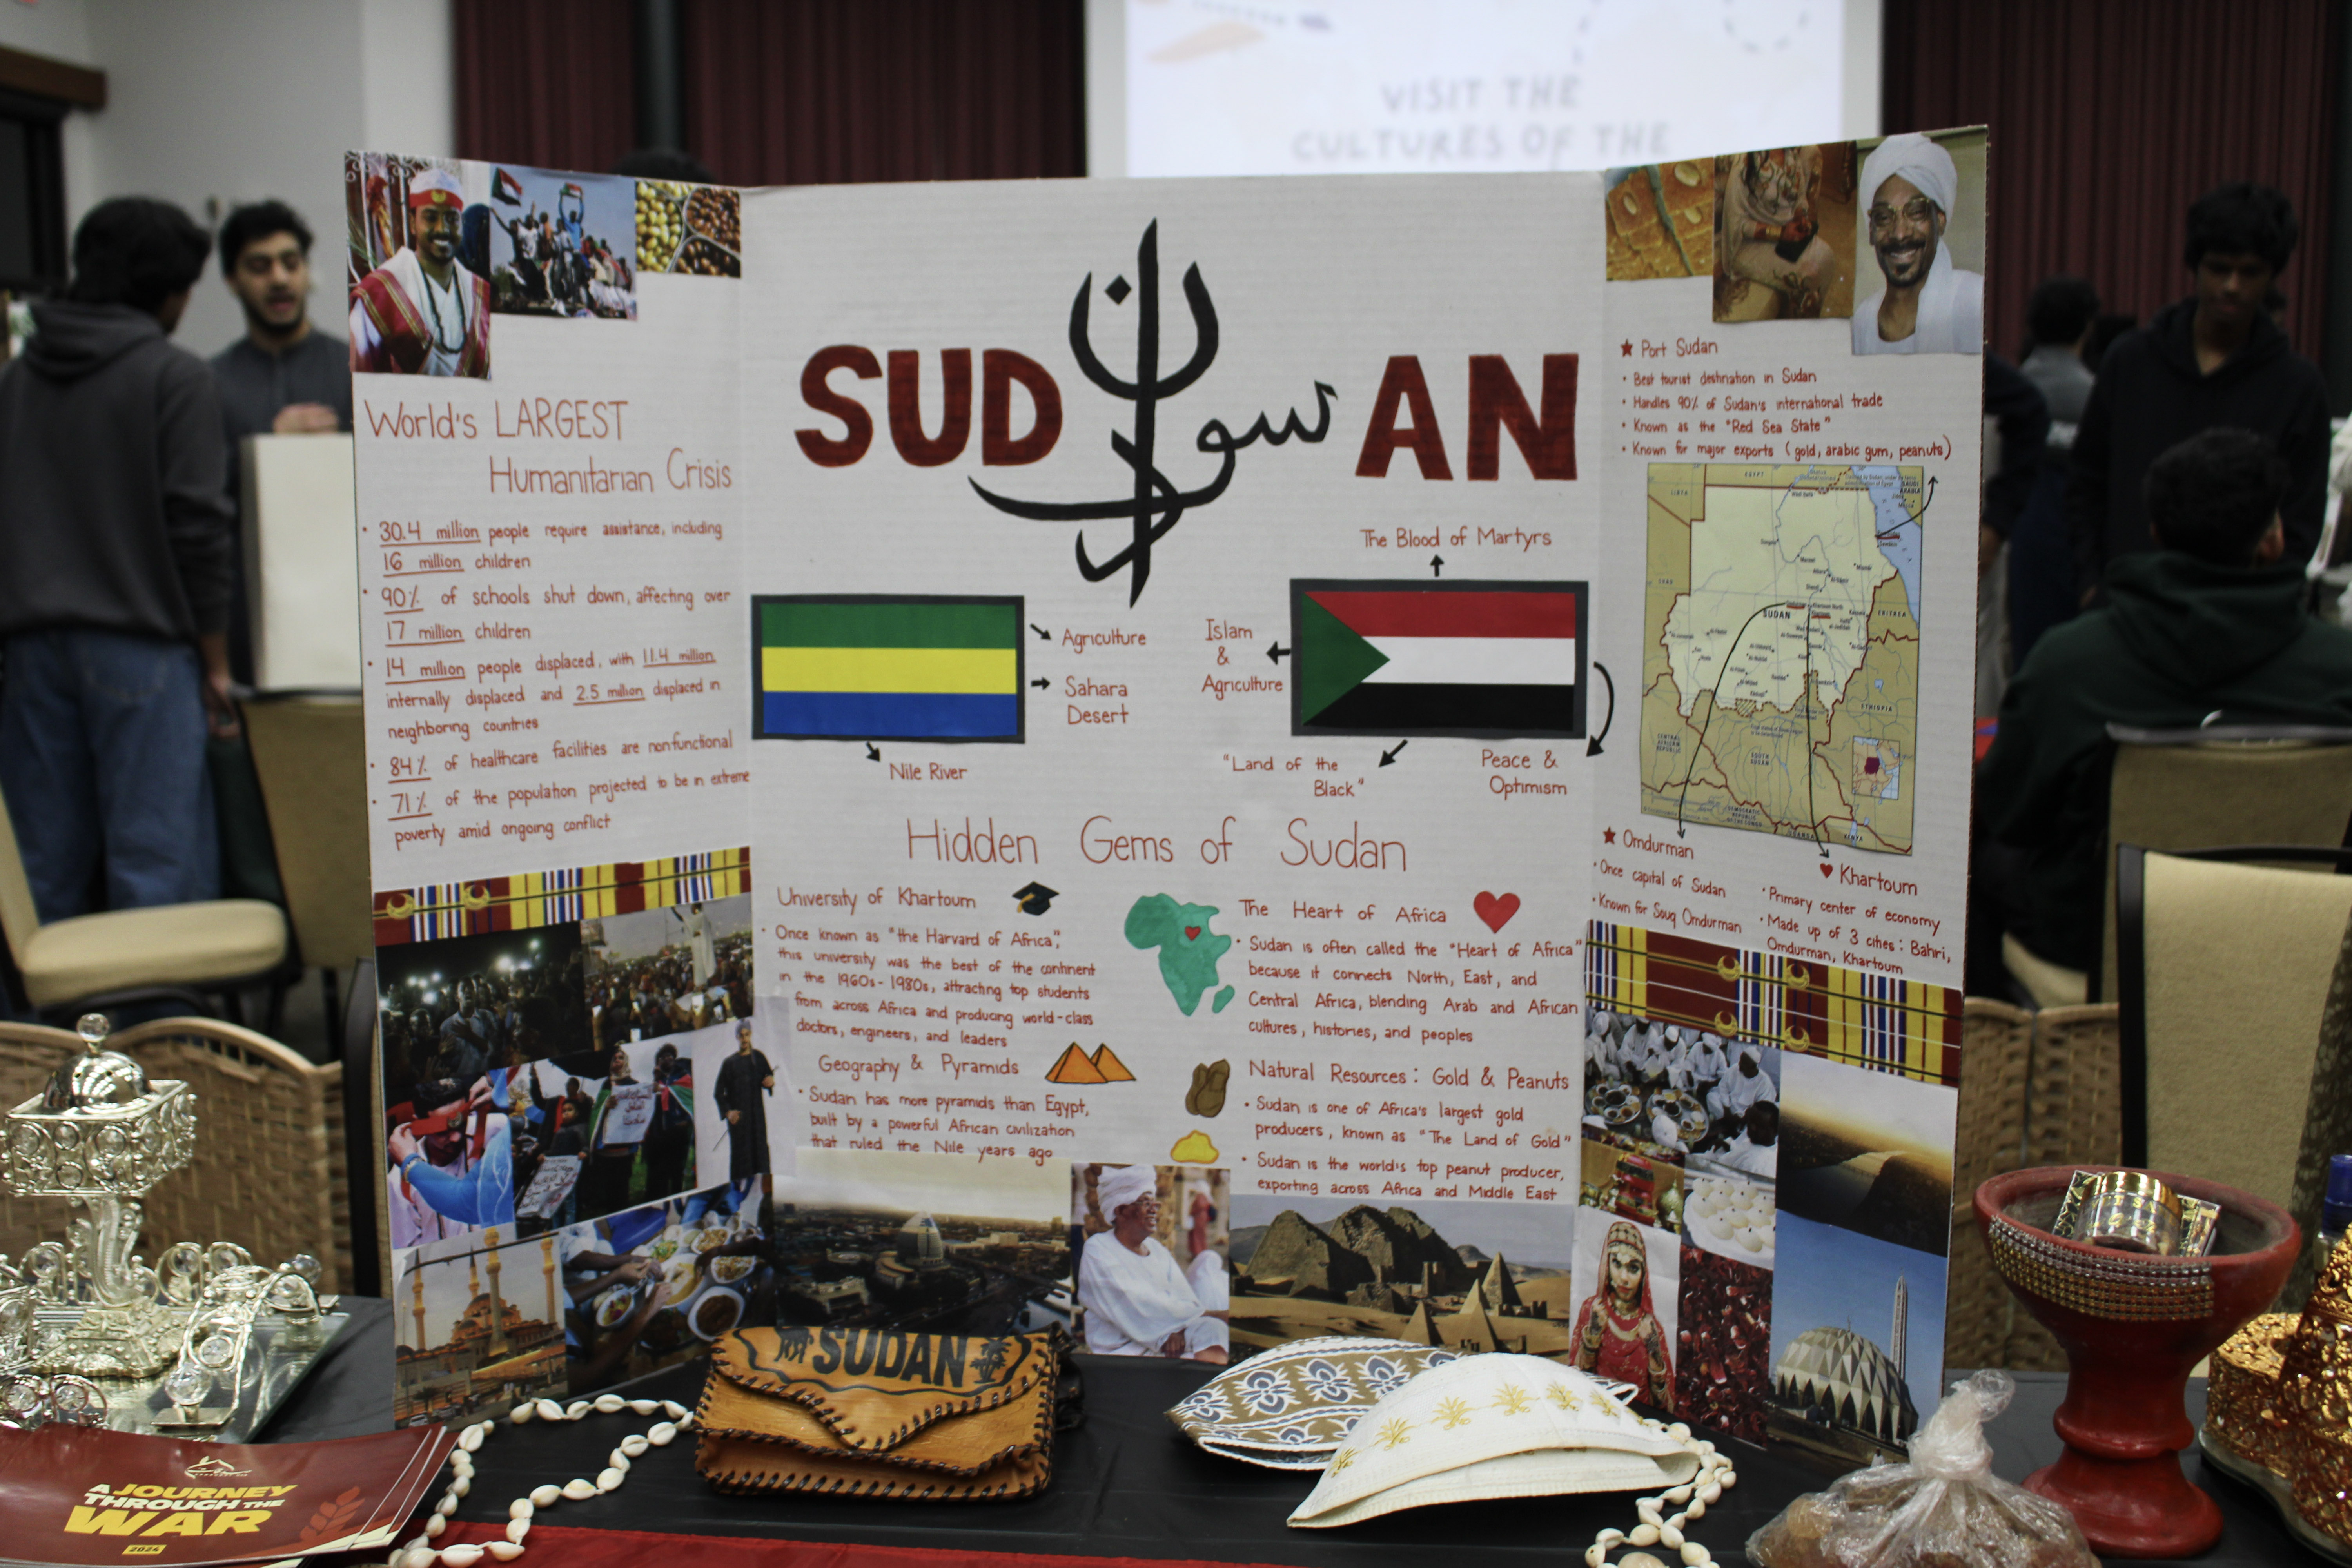 VISIT THE
CULTURES OF THE
World's LARGEST
Humanitarian Crisis
• 30.4 million people require assistance, including
16 million children
• 90% of schools shut down, affecting over
17 million children
• 14 million people displaced, with 11.4 million
internally displaced and 2.5 million displaced in
neighboring countries
• 84% of healthcare facilities are nonfunctional
• 71% of the population projected to be in extreme
poverty amid ongoing conflict
SUD AN
سودان
Agriculture
Sahara
Desert
Nile River
The Blood of Martyrs
Islam
&
Agriculture
"Land of the
Black"
Peace &
Optimism
Hidden Gems of Sudan
University of Khartoum
• Once known as "the Harvard of Africa",
this university was the best of the continent
in the 1960s-1980s, attracting top students
from across Africa and producing world-class
doctors, engineers, and leaders
Geography & Pyramids
• Sudan has more pyramids than Egypt,
built by a powerful African civilization
that ruled the Nile years ago
The Heart of Africa
• Sudan is often called the "Heart of Africa"
because it connects North, East, and
Central Africa, blending Arab and African
cultures, histories, and peoples
Natural Resources: Gold & Peanuts
• Sudan is one of Africa's largest gold
producers, known as "The Land of Gold"
• Sudan is the world's top peanut producer,
exporting across Africa and Middle East
★ Port Sudan
• Best tourist destination in Sudan
• Handles 90% of Sudan's international trade
• Known as the "Red Sea State"
• Known for major exports (gold, arabic gum, peanuts)
EGYPT
LIBYA
SAUDI
ARABIA
CHAD
SUDAN
ERITREA
ETHIOPIA
CENTRAL
AFRICAN
REPUBLIC
SOUTH
SUDAN
UGANDA
KENYA
★ Omdurman
• Once capital of Sudan
• Known for Souq Omdurman
♥ Khartoum
• Primary center of economy
• Made up of 3 cities: Bahri,
Omdurman, Khartoum
SUDAN
A JOURNEY
THROUGH THE
WAR
2024